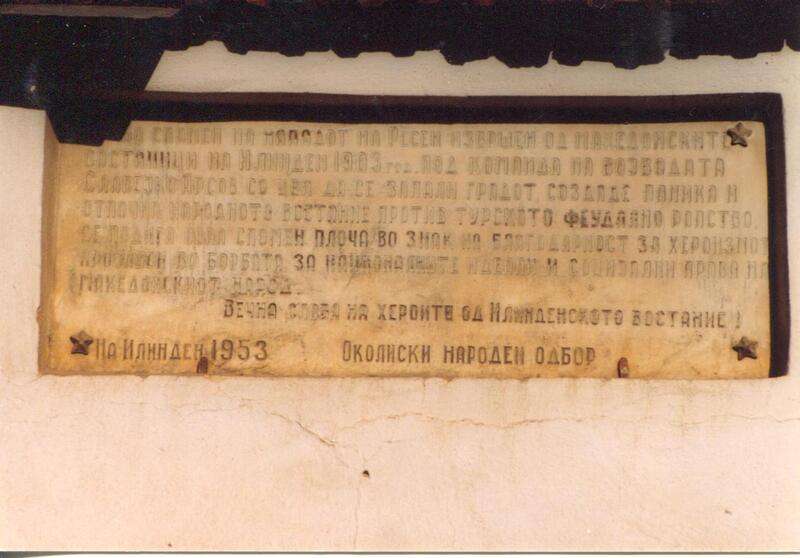 спомен на нападот на Ресен извршен од македонските
востаници на Илинден 1903 год. под команда на војводата
Славејко Арсов со цел да се запали градот создаде паника и
отпочна народното востание против турското феудално ропство.
се подига оваа спомен плоча во знак на благодарност за херојзмот
во борбата за националните идеали и социјални права на
македонскиот народ.
Вечна слава на хероите од Илинденското востание!
На Илинден 1953 Околиски народен одбор